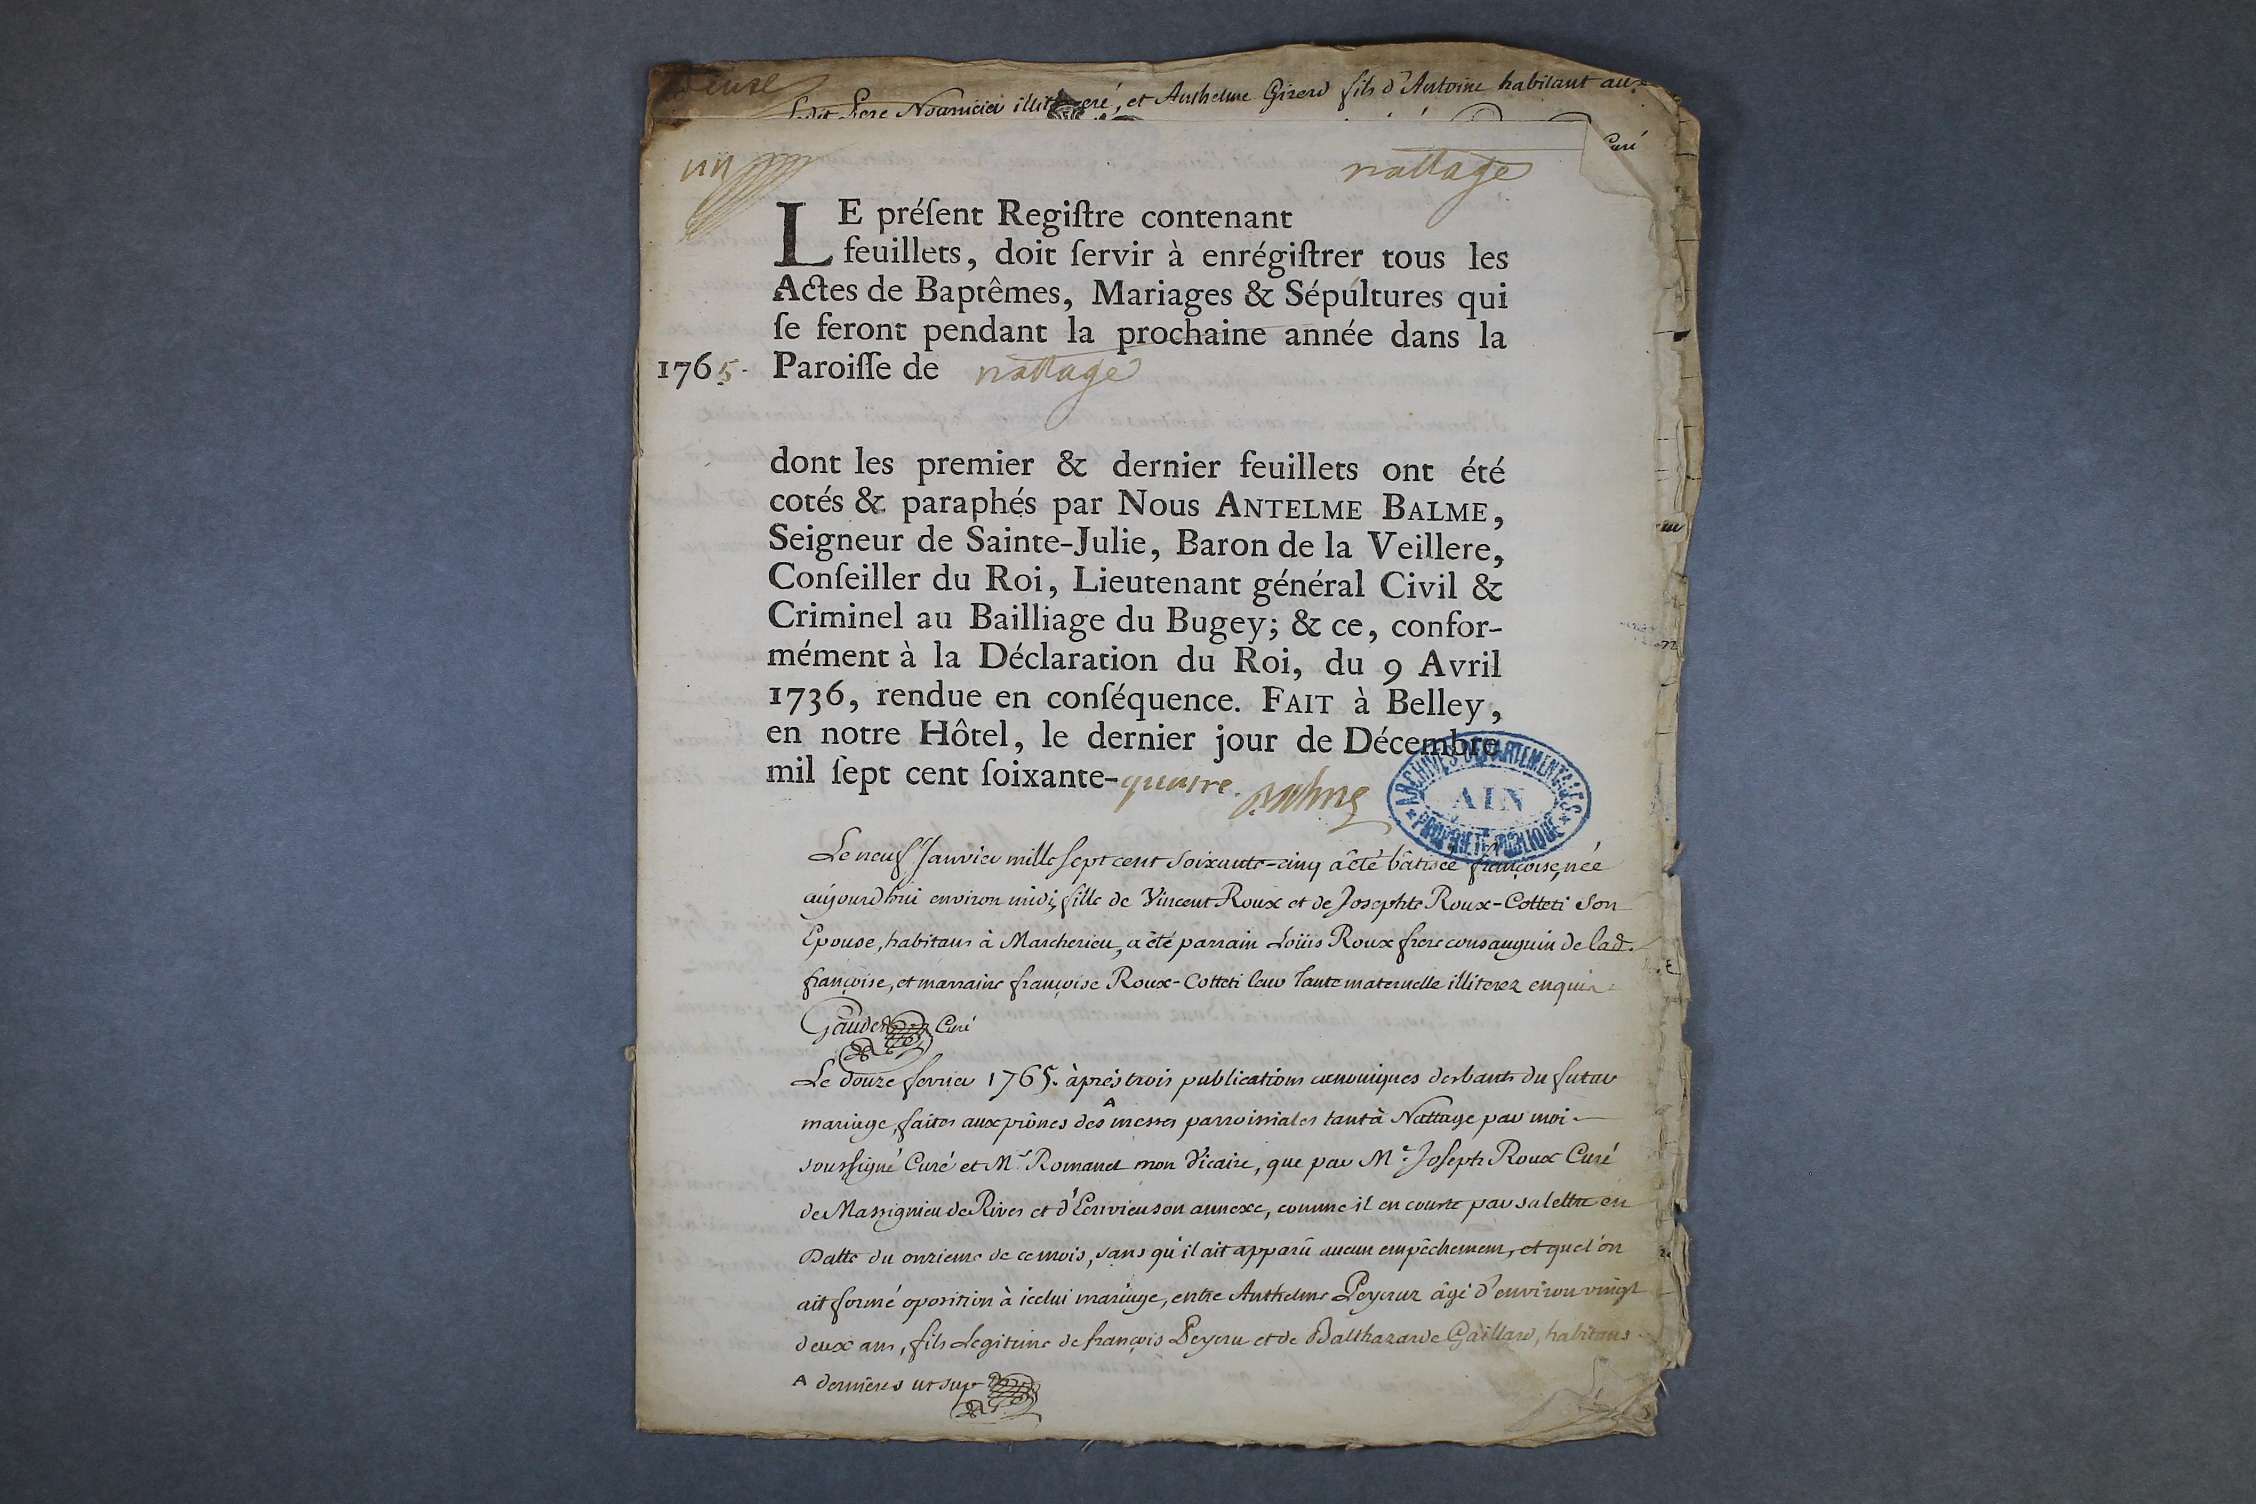 Ledit Pere Nourricier illiteré, et Anthelme Girerd fils d'Antoine habitant au
Curé
un
nattage
LE préſent Regiſtre contenant
feuillets, doit ſervir à enrégiſtrer tous les
Actes de Baptêmes, Mariages & Sépultures qui
ſe feront pendant la prochaine année dans la
1765. Paroiſſe de nattage
dont les premier & dernier feuillets ont été
cotés & paraphés par Nous ANTELME BALME,
Seigneur de Sainte-Julie, Baron de la Veillere,
Conſeiller du Roi, Lieutenant général Civil &
Criminel au Bailliage du Bugey; & ce, confor-
mément à la Déclaration du Roi, du 9 Avril
1736, rendue en conſéquence. FAIT à Belley,
en notre Hôtel, le dernier jour de Décembre
mil ſept cent ſoixante-quatre. Balme
ARCHIVES DÉPARTEMENTALES
AIN
PROPRIÉTÉ PUBLIQUE
Le neuf Janvier mille sept cent soixante-cinq a été bâtisée françoise, née
aujourd'hui environ midi, fille de Vincent Roux et de Josephte Roux-Cotteti son
Epouse, habitans à Marcherieu, a été parrain Loüis Roux frere consanguin de lad.
françoise, et marraine françoise Roux-Cotteti leur Tante maternelle illiterez enquis
Gaudet Curé
Le douze fevrier 1765. àprés trois publications canoniques des bants du futur
mariage, faites aux prônes des A messes parroissiales tant à Nattage par moi
soussigné Curé et Mr. Romanet mon Vicaire, que par Me. Joseph Roux Curé
de Massignieu de Rives et d'Ecrivieu son annexe, comme il en conste par sa lettre en
Datte du onzieme de ce mois, sans qu'il ait apparû aucun empêchement, et que l'on
ait formé oposition à icelui mariage, entre Anthelme Peycruz âgé d'environ vingt
deux ans, fils Legitime de françois Peycru et de Balthazarde Gaillard, habitans
A dernieres ut sup